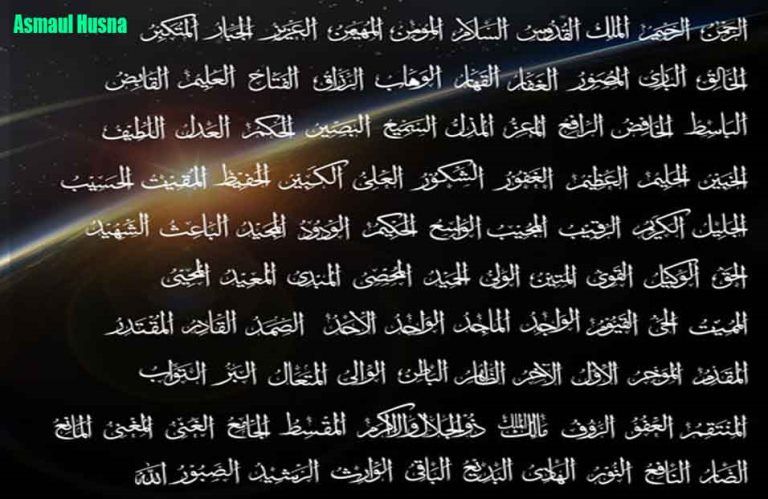 Asmaul Husna
الرحمن الرحيم الملك القدوس السلام المؤمن المهيمن العزيز الجبار المتكبر
الخالق البارئ المصور الغفار القهار الوهاب الرزاق الفتاح العليم القابض
الباسط الخافض الرافع المعز المذل السميع البصير الحكم العدل اللطيف
الخبير الحليم العظيم الغفور الشكور العلى الكبير الحفيظ المقيت الحسيب
الجليل الكريم الرقيب المجيب الواسع الحكيم الودود المجيد الباعث الشهيد
الحق الوكيل القوى المتين الولى الحميد المحصى المبدى المعيد المحيى
المميت الحى القيوم الواجد الماجد الواحد الاحد الصمد القادر المقتدر
المقدم المؤخر الاول الآخر الظاهر الباطن الوالى المتعال البر التواب
المنتقم العفو الرؤف مالك الملك ذو الجلال والاكرم المقسط الجامع الغنى المغنى المانع
الضار النافع النور الهادى البديع الباقى الوارث الرشيد الصبور الله